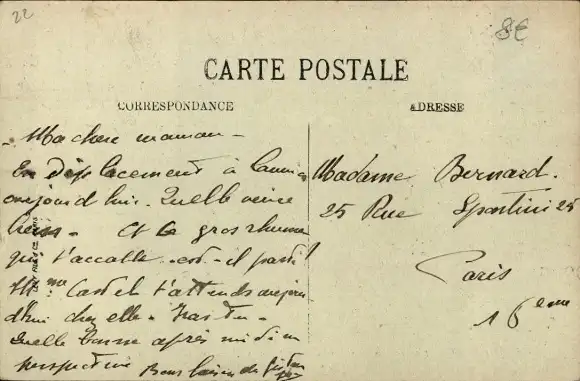 22
8€
CARTE POSTALE
CORRESPONDANCE
ADRESSE
Ma chère maman -
En déplacement à
aujourd'hui. Quelle veine
hein - Et le gros rhume
qui t'accable est-il parti!
Mme Castel t'attends aujour
d'hui chez elle - Iras tu -
Quelle bonne après midi en
perspective Bons baisers de
Madame Bernard.
25 Rue Spontini 25
Paris
16eme